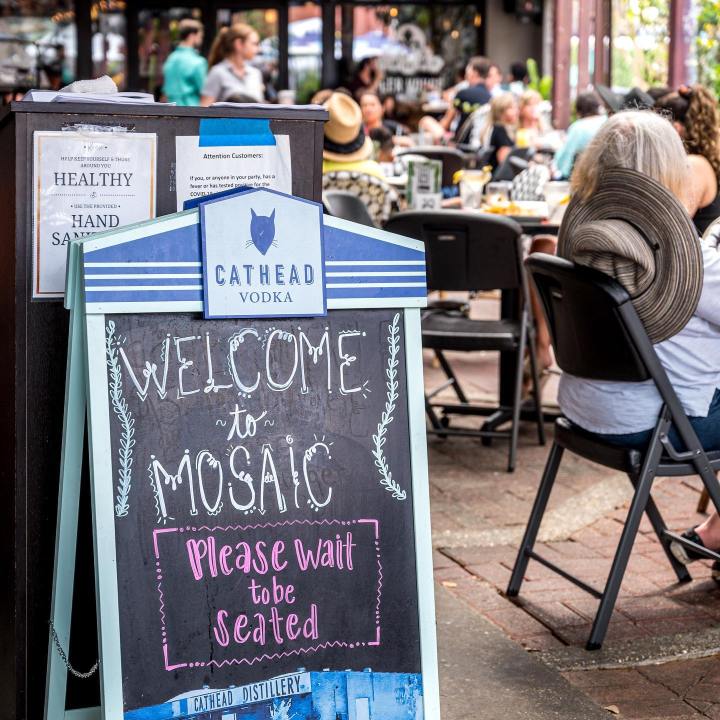 HELP KEEP YOURSELF & THOSE
AROUND YOU
HEALTHY
• USE THE PROVIDED •
HAND
Attention Customers:
If you, or anyone in your party, has a
fever or has tested positive for the
CATHEAD
VODKA
WELCOME
to
MOSAIC
Please wait
to be
seated
CATHEAD DISTILLERY